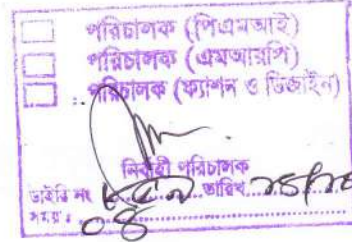 পরিচালক (পিএমআই)
পরিচালক (এমআরপি)
পরিচালক (ফ্যাশন ও ডিজাইন)
নির্বাহী পরিচালক
ডাইরি নং ............ তারিখ............
সময় : ............